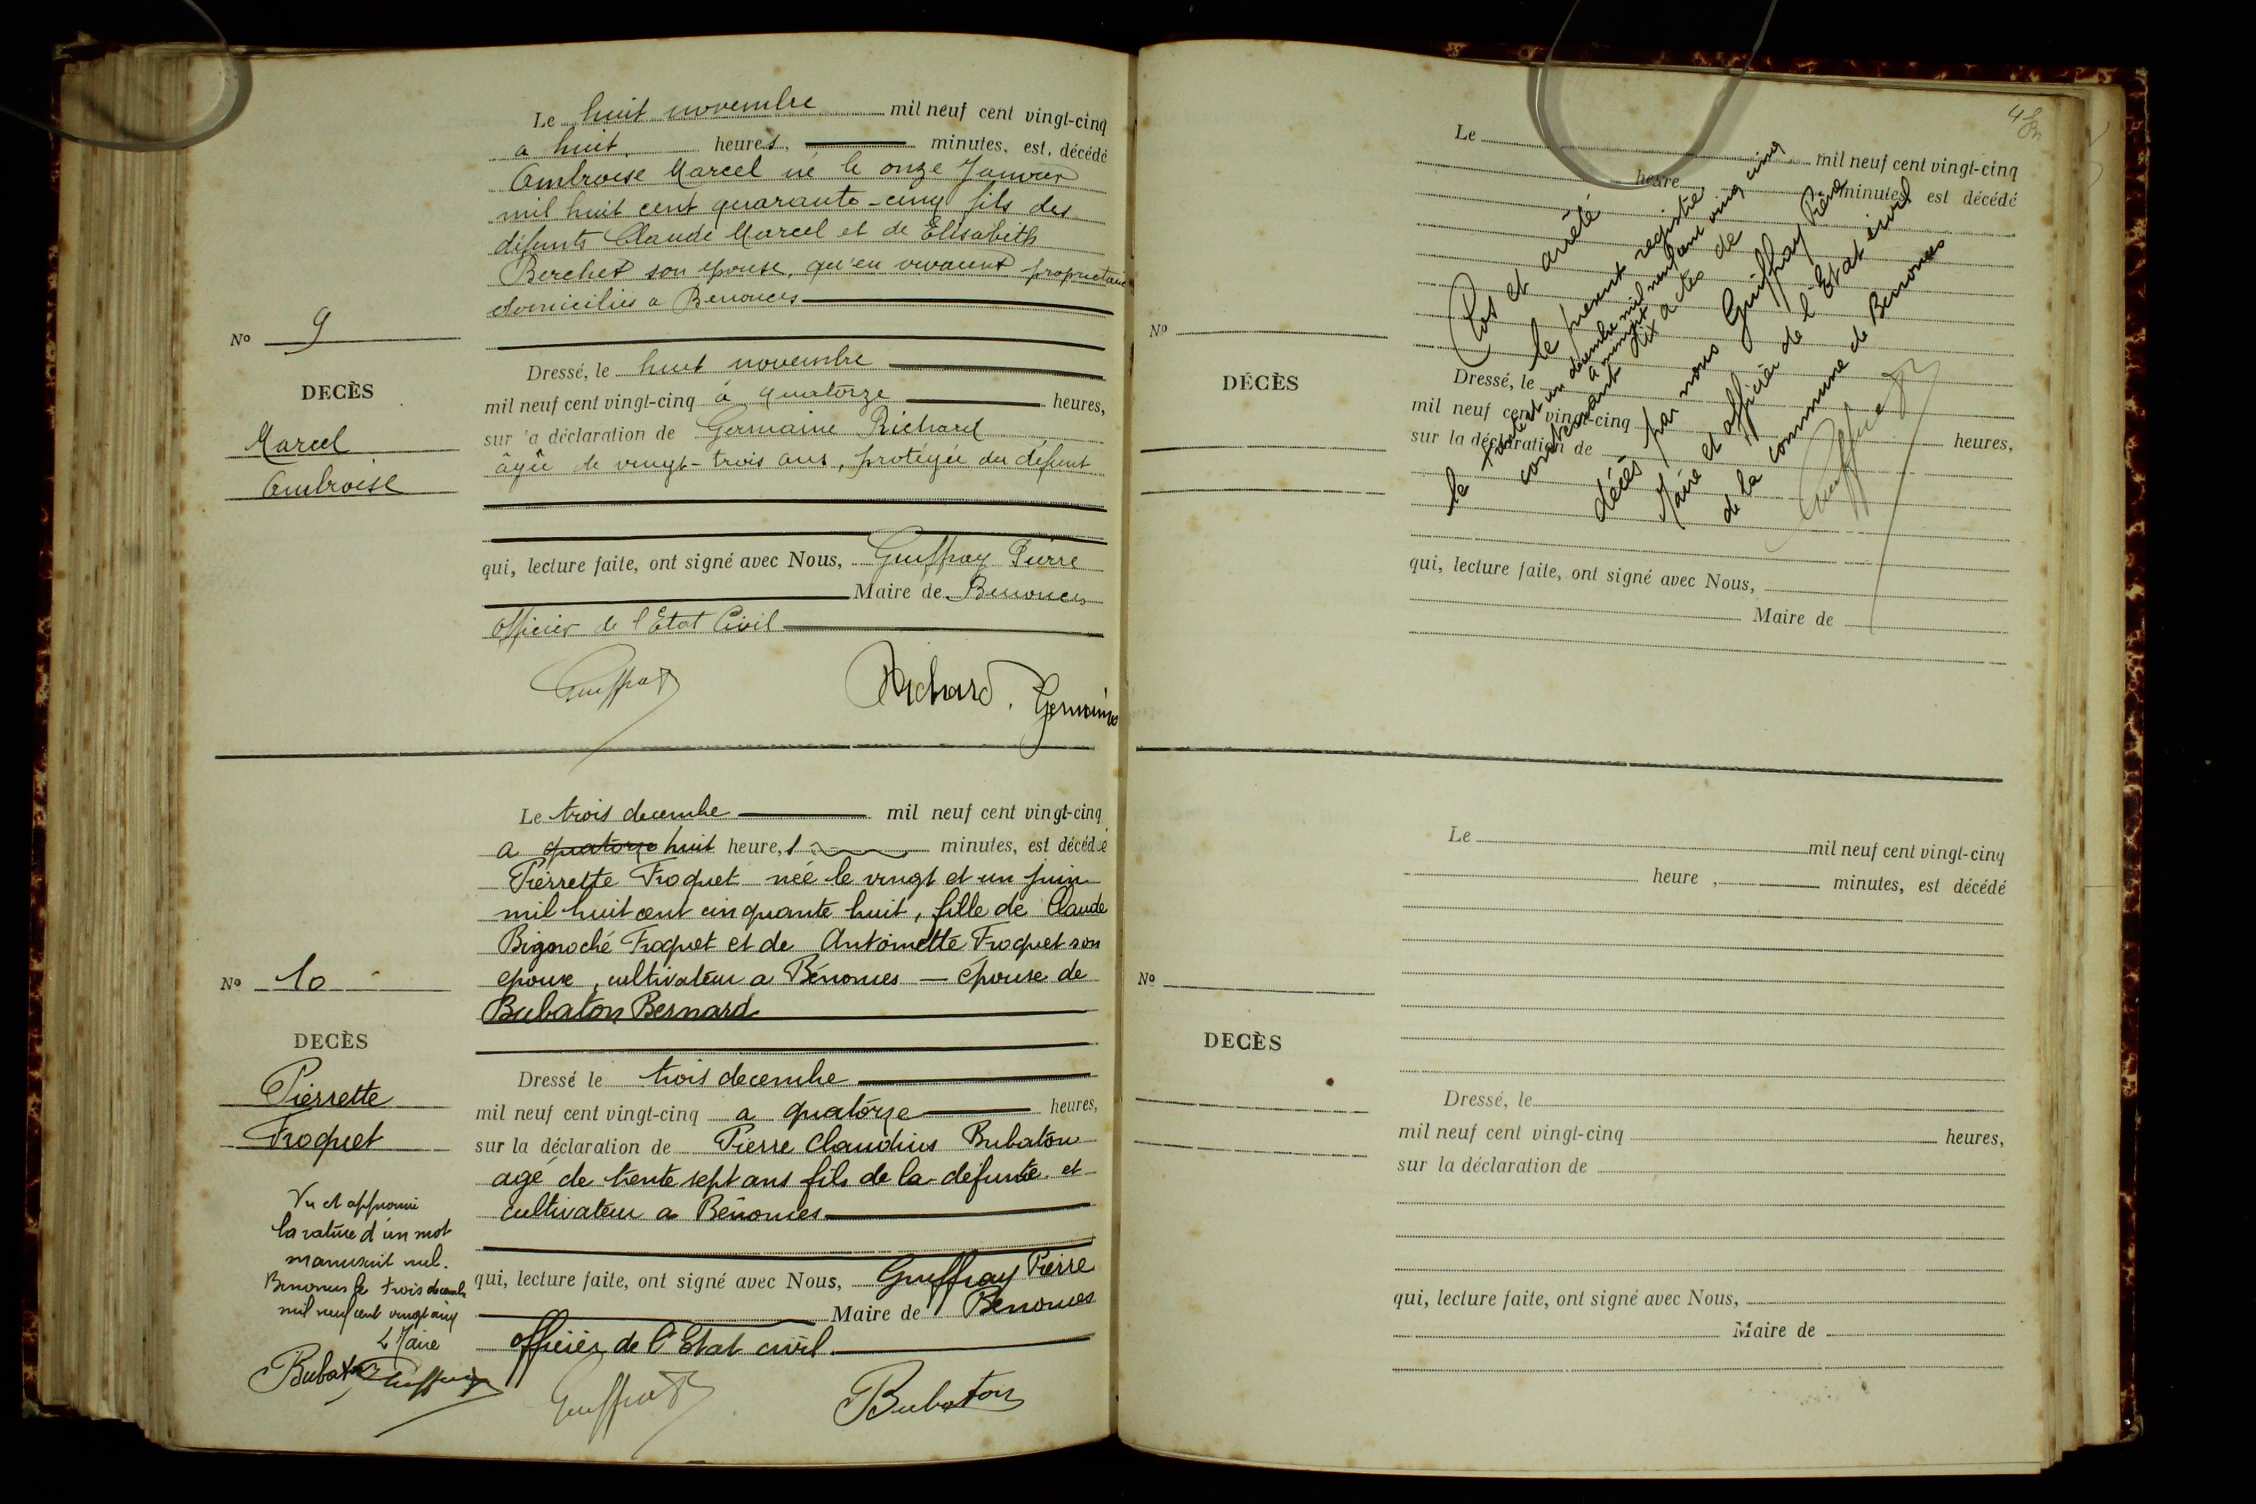 Le huit novembre mil neuf cent vingt-cinq
a huit heures, minutes, est décédé
Ambroise Marcel né le onze Janvier
mil huit cent quarante-cinq fils des
défunts Claude Marcel et de Elisabeth
Berchet son épouse, qu'en vivaient propriétaires
domiciliés a Benonces
No 9
DECÈS
Marcel
Ambroise
Dressé, le huit novembre
mil neuf cent vingt-cinq à quatorze heures,
sur la déclaration de Germaine Richard
âgée de vingt-trois ans, protégée du défunt
qui, lecture faite, ont signé avec Nous, Guiffray Pierre
Maire de Benonces
officier de l'Etat Civil
Guiffray
Richard. Germaine
Le trois decembre mil neuf cent vingt-cinq
a quatorze huit heure, s minutes, est décédée
Pierrette Froquet née le vingt et un juin
mil huit cent cinquante huit, fille de Claude
Froquet et de Antoinette Froquet son
epouse, cultivateur a Bénonces — épouse de
Bubaton Bernard
No 10
DECÈS
Pierrette
Froquet
Dressé le trois decembre
mil neuf cent vingt-cinq a quatorze heures,
sur la déclaration de Pierre Claudius Bubaton
agé de trente sept ans fils de la defunte et
cultivateur a Bénonces
qui, lecture faite, ont signé avec Nous, Guiffray Pierre
Maire de Bénonces
officier de l'Etat civil
Vu et approuvé
la rature d'un mot
manuscrit nul.
Benonces le trois decembre
mil neuf cent vingt cinq
L Maire
Bubaton Guiffray
Guiffray
Bubaton
48
Le mil neuf cent vingt-cinq
heure minutes, est décédé
No
DÉCÈS
Clos et arrêté
le present registre
le trente et un decembre mil neuf cent vingt cinq
a minuit
contenant dix actes de
décès par nous Guiffray Pierre
Maire et officier de l'Etat civil
de la commune de Benonces
Guiffray
Dressé, le
mil neuf cent vingt-cinq heures,
sur la déclaration de
qui, lecture faite, ont signé avec Nous,
Maire de
Le mil neuf cent vingt-cinq
heure , minutes, est décédé
No
DECÈS
Dressé, le
mil neuf cent vingt-cinq heures,
sur la déclaration de
qui, lecture faite, ont signé avec Nous,
Maire de